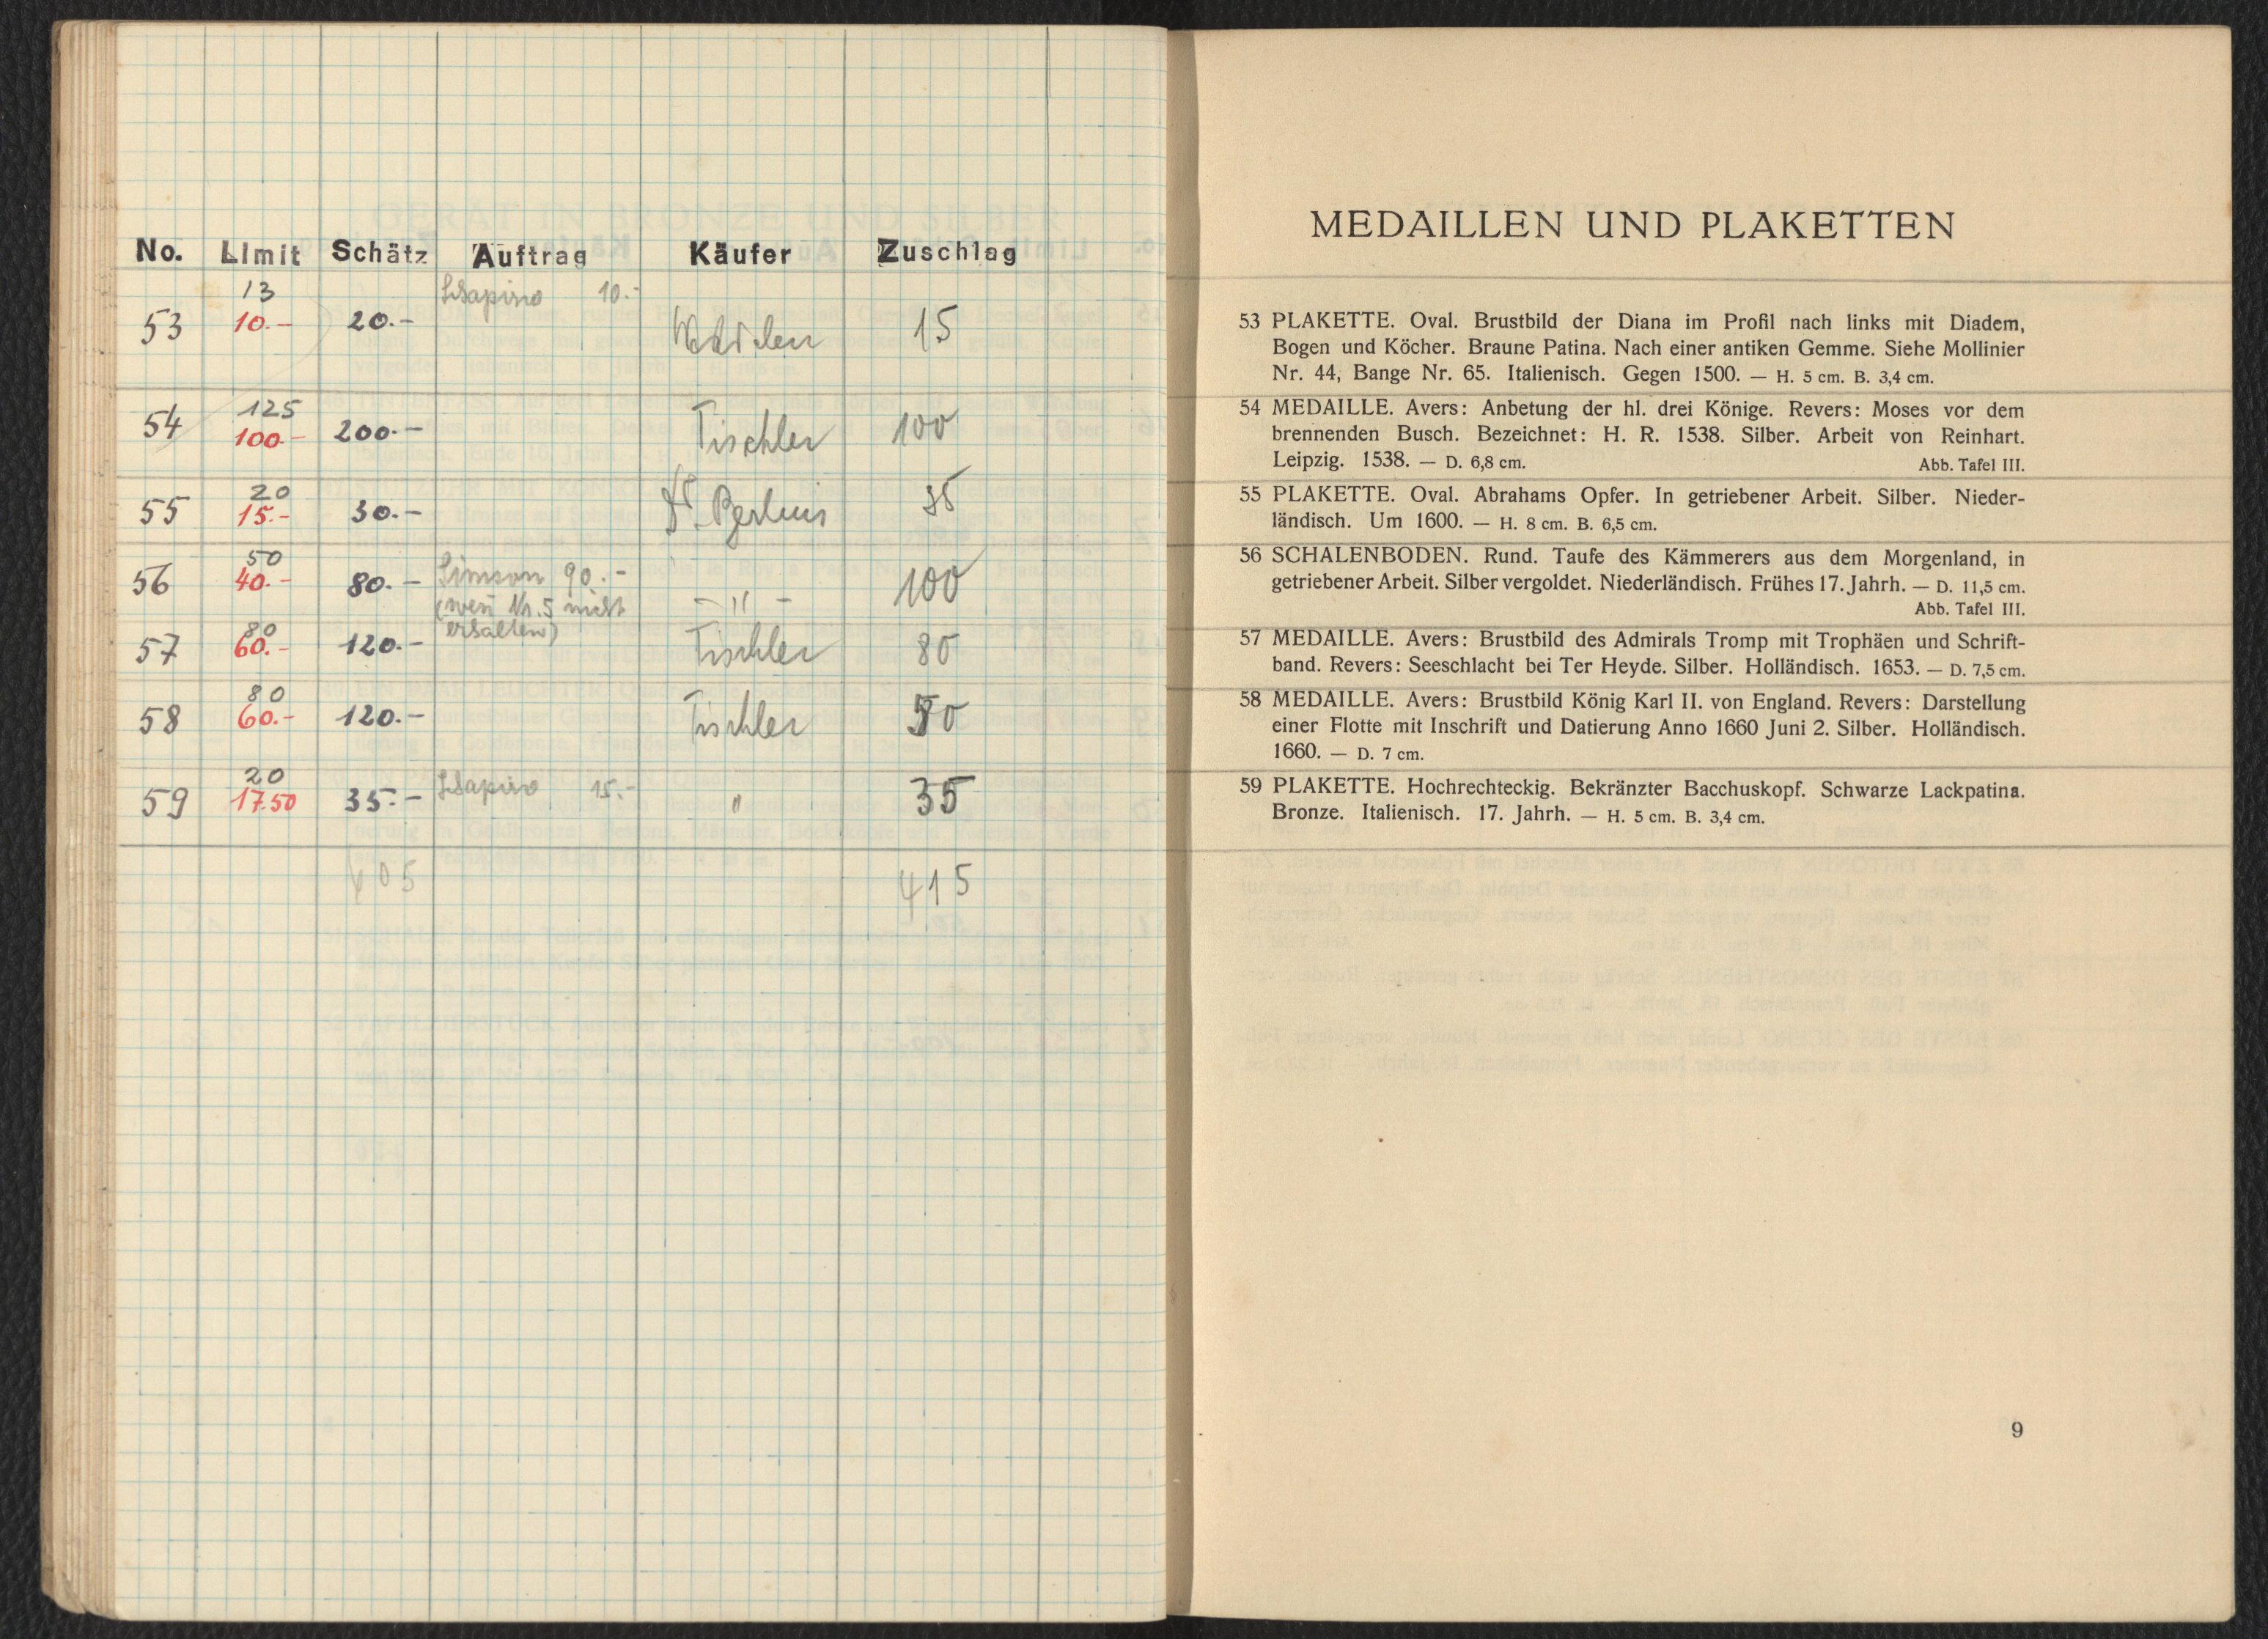 No. Limit Schätz Auftrag Käufer Zuschlag
13 Schapiro 10.-
53 10.- 20.- 15
125
54 100.- 200.- Tischler 100
20
55 15.- 30.- 35
50
56 40.- 80.- Simson 90.- - " - 100
(wen Nr. 5 nicht
erhalten)
80
57 60.- 120.- Tischler 80
80
58 60.- 120.- Tischler 50
20
59 17.50 35.- Schapiro 15.- " 35
405 415
MEDAILLEN UND PLAKETTEN
53 PLAKETTE. Oval. Brustbild der Diana im Profil nach links mit Diadem,
Bogen und Köcher. Braune Patina. Nach einer antiken Gemme. Siehe Mollinier
Nr. 44, Bange Nr. 65. Italienisch. Gegen 1500. — H. 5 cm. B. 3,4 cm.
54 MEDAILLE. Avers: Anbetung der hl. drei Könige. Revers: Moses vor dem
brennenden Busch. Bezeichnet: H. R. 1538. Silber. Arbeit von Reinhart.
Leipzig. 1538. — D. 6,8 cm. Abb. Tafel III.
55 PLAKETTE. Oval. Abrahams Opfer. In getriebener Arbeit. Silber. Nieder-
ländisch. Um 1600. — H. 8 cm. B. 6,5 cm.
56 SCHALENBODEN. Rund. Taufe des Kämmerers aus dem Morgenland, in
getriebener Arbeit. Silber vergoldet. Niederländisch. Frühes 17. Jahrh. — D. 11,5 cm.
Abb. Tafel III.
57 MEDAILLE. Avers: Brustbild des Admirals Tromp mit Trophäen und Schrift-
band. Revers: Seeschlacht bei Ter Heyde. Silber. Holländisch. 1653. — D. 7,5 cm.
58 MEDAILLE. Avers: Brustbild König Karl II. von England. Revers: Darstellung
einer Flotte mit Inschrift und Datierung Anno 1660 Juni 2. Silber. Holländisch.
1660. — D. 7 cm.
59 PLAKETTE. Hochrechteckig. Bekränzter Bacchuskopf. Schwarze Lackpatina.
Bronze. Italienisch. 17. Jahrh. — H. 5 cm. B. 3,4 cm.
9